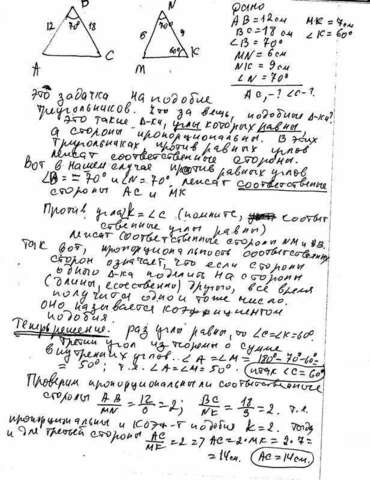 B
N
Дано
12 70° 18
70°
6 9
60°
A C
M K
AB = 12 см MK = 7 см
BC = 18 см ∠K = 60°
∠B = 70°
MN = 6 см
NK = 9 см
∠N = 70°
AC, -? ∠C -?
Это задачка на подобие
треугольников. Что за вещь, подобные Δ-ки?
Это такие Δ-ки, углы которых равны,
а стороны пропорциональны. В этих
треугольниках против равных углов
лежат соответственные стороны.
Вот в нашем случае против равных углов
∠B = 70° и ∠N = 70° лежат соответственные
стороны AC и MK
Против угла K = ∠C (помните, соответ
ственные углы равны)
лежат соответственные стороны NM и BA.
Так вот, пропорциональность соответственных
сторон означает, что если стороны
одного Δ-ка поделить на стороны
(длины, естественно) другого, всё время
получится одно и тоже число.
Оно называется коэффициентом
подобия
Теперь решение. раз углы равны, то ∠C = ∠K = 60°
Третий угол из теоремы о сумме
внутренних углов. ∠A = ∠M = 180° - 70° - 60° =
= 50°; т.е. ∠A = ∠M = 50°. итак ∠C = 60°
Проверим пропорциональны ли соответственные
стороны AB/MN = 12/6 = 2; BC/NK = 18/9 = 2. т.е.
пропорциональны и коэф-т подобия k = 2. Тогда
и для третьей стороны AC/MK = 2 => AC = 2·MK = 2·7 =
= 14 см. AC = 14 см.